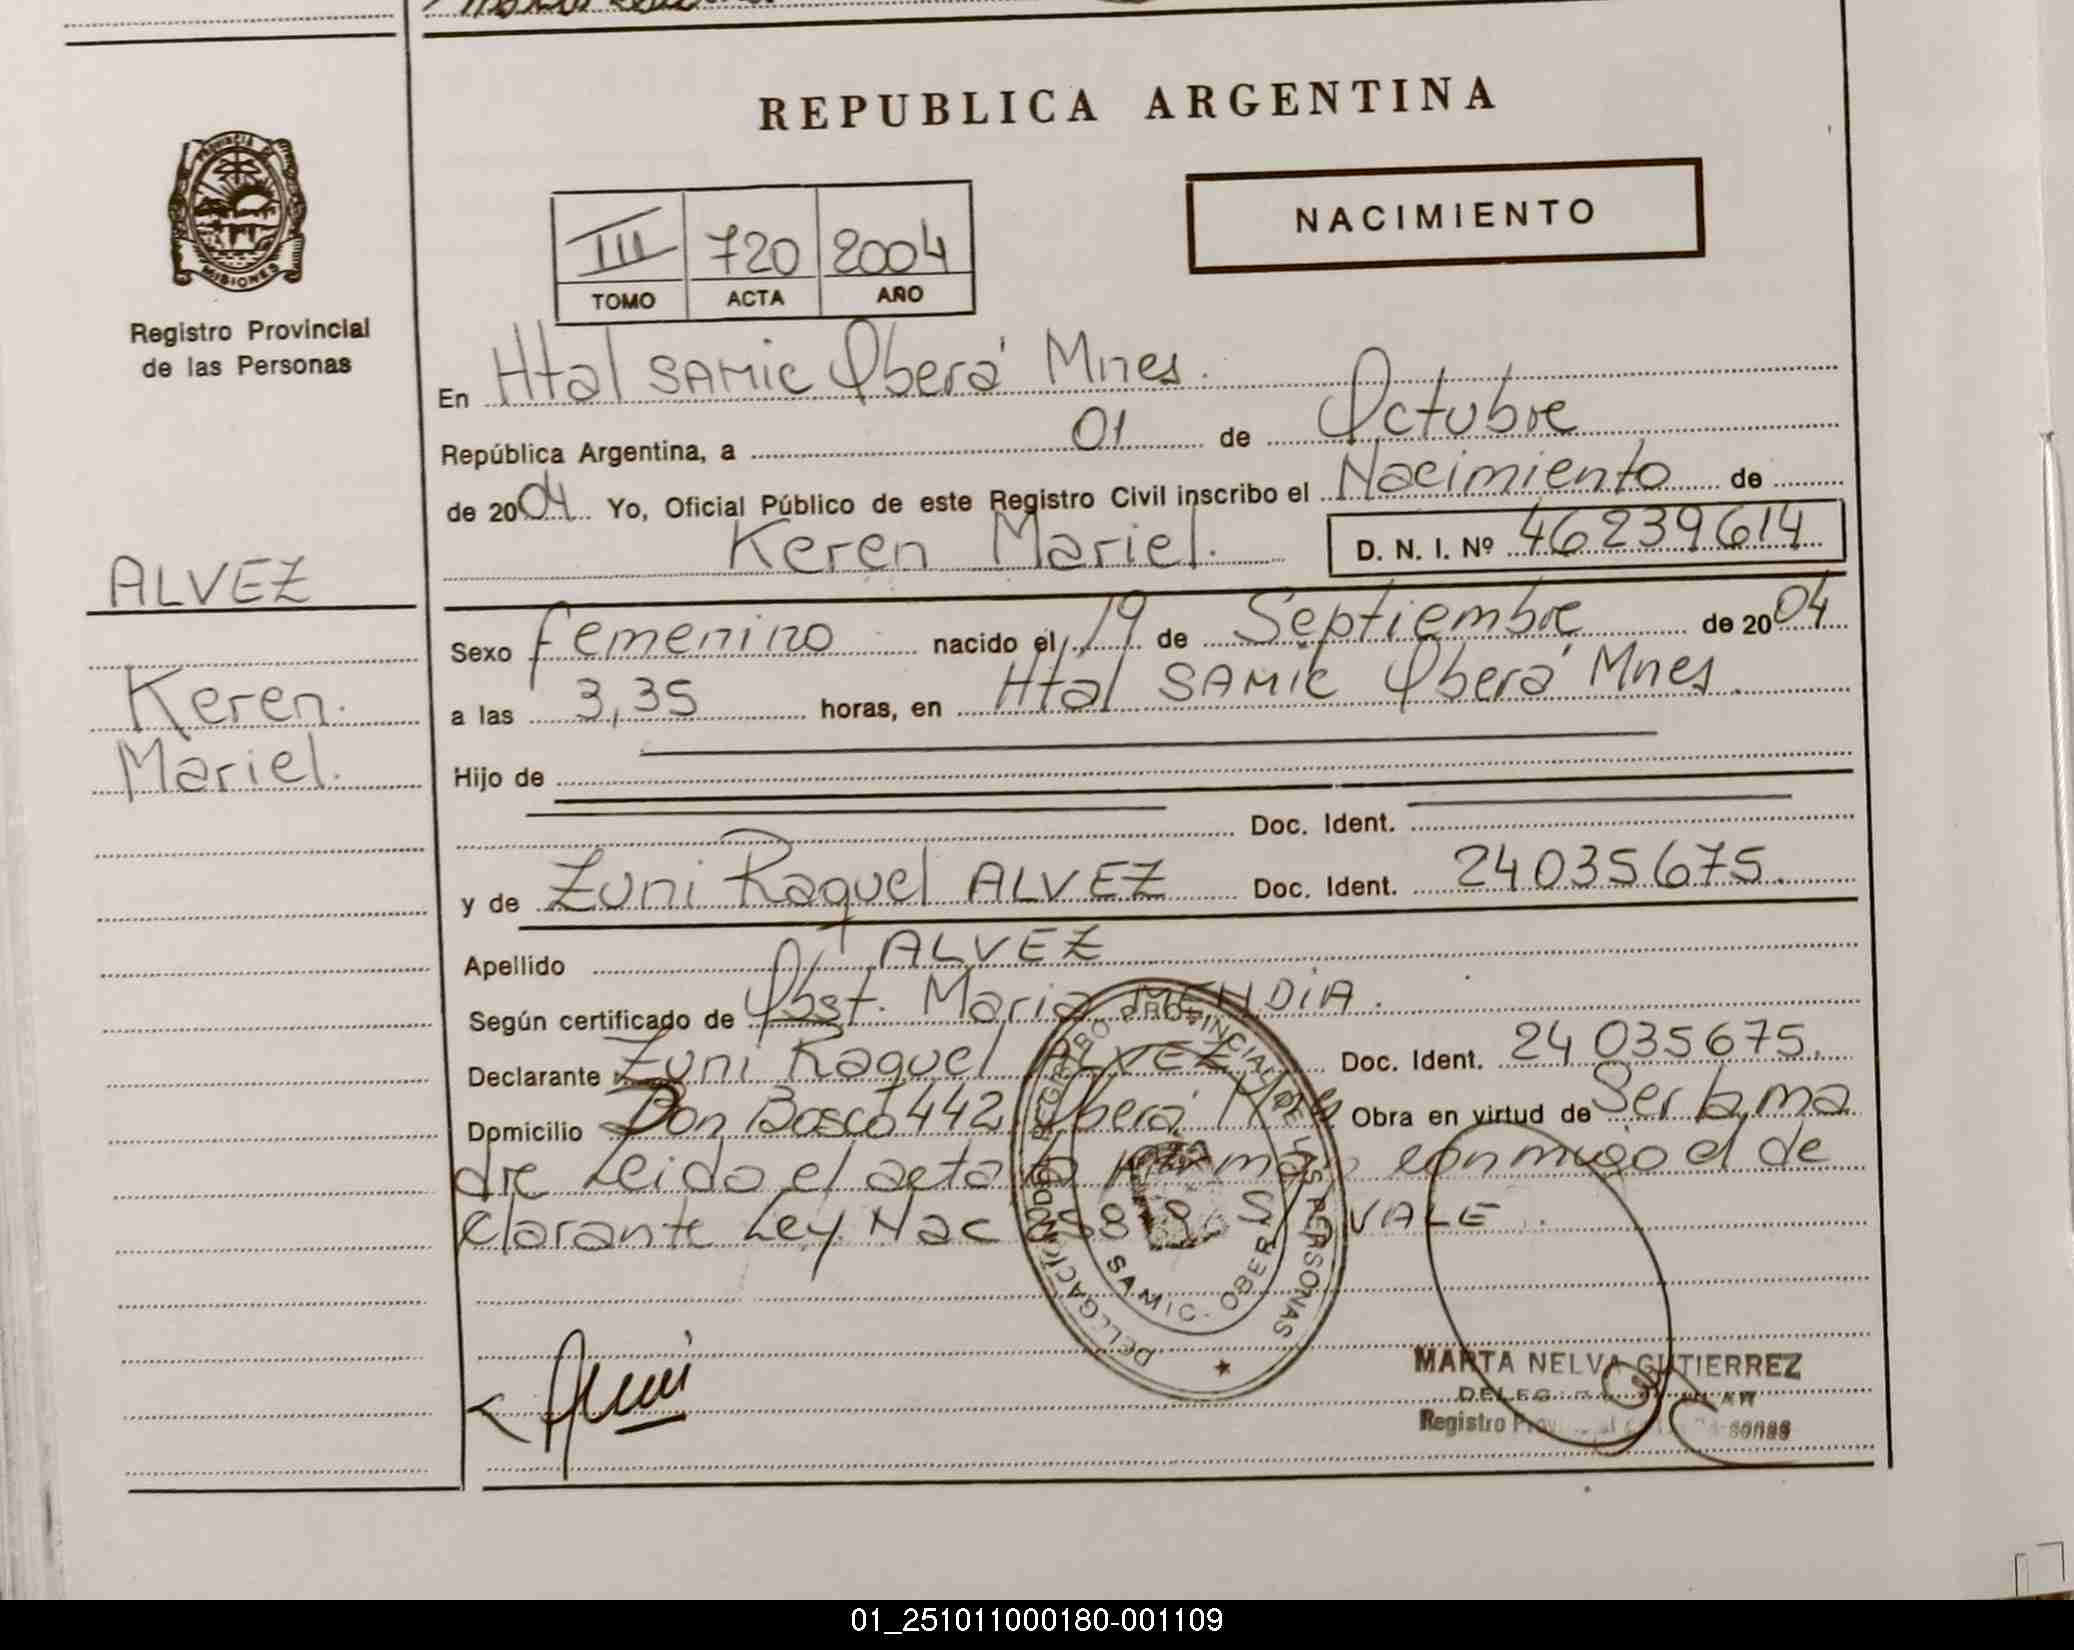 REPUBLICA ARGENTINA
PROVINCIA DE
MISIONES
Registro Provincial
de las Personas
NACIMIENTO
III 720 2004
TOMO ACTA AÑO
En Htal SAMIC Oberá Mnes.
República Argentina, a 01 de Octubre
de 2004 Yo, Oficial Público de este Registro Civil inscribo el Nacimiento de
Keren Mariel. D. N. I. Nº 46239614
ALVEZ
Keren.
Mariel.
Sexo femenino nacido el 19 de Septiembre de 2004
a las 3,35 horas, en Htal SAMIC Oberá Mnes.
Hijo de
Doc. Ident.
y de Zuni Raquel ALVEZ Doc. Ident. 24035675.
Apellido ALVEZ
Según certificado de Obst. Maria MENDIA.
Declarante Zuni Raquel ALVEZ Doc. Ident. 24035675.
Domicilio Don Bosco 442 Oberá Obra en virtud de Ser la ma
dre Leido el acta la conmigo el de
clarante Ley Nac VALE.
DELEGACION REGISTRO PROVINCIAL DE LAS PERSONAS
SAMIC - OBERA
MARTA NELVA GUTIERREZ
Registro
01_251011000180-001109